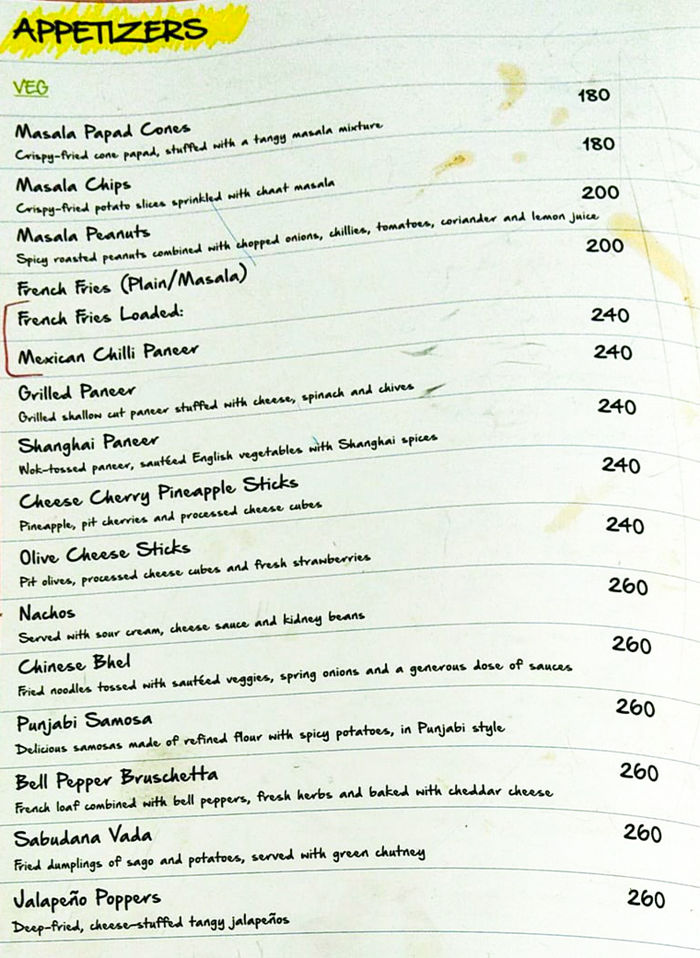 APPETIZERS
VEG
Masala Papad Cones 180
Crispy-fried cone papad, stuffed with a tangy masala mixture
Masala Chips 180
Crispy-fried potato slices sprinkled with chaat masala
Masala Peanuts 200
Spicy roasted peanuts combined with chopped onions, chillies, tomatoes, coriander and lemon juice
French Fries (Plain/Masala) 200
French Fries Loaded:
Mexican Chilli Paneer 240
Grilled Paneer 240
Grilled shallow cut paneer stuffed with cheese, spinach and chives
Shanghai Paneer 240
Wok-tossed paneer, sautéed English vegetables with Shanghai spices
Cheese Cherry Pineapple Sticks 240
Pineapple, pit cherries and processed cheese cubes
Olive Cheese Sticks 240
Pit olives, processed cheese cubes and fresh strawberries
Nachos 260
Served with sour cream, cheese sauce and kidney beans
Chinese Bhel 260
Fried noodles tossed with sautéed veggies, spring onions and a generous dose of sauces
Punjabi Samosa 260
Delicious samosas made of refined flour with spicy potatoes, in Punjabi style
Bell Pepper Bruschetta 260
French loaf combined with bell peppers, fresh herbs and baked with cheddar cheese
Sabudana Vada 260
Fried dumplings of sago and potatoes, served with green chutney
Jalapeño Poppers 260
Deep-fried, cheese-stuffed tangy jalapeños